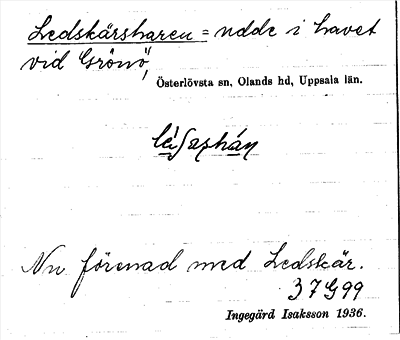 Ledskärsharen = udde i havet
vid Grönö,
Österlövsta sn, Olands hd, Uppsala län.
Nu förenad med Ledskär.
37G99
Ingegärd Isaksson 1936.